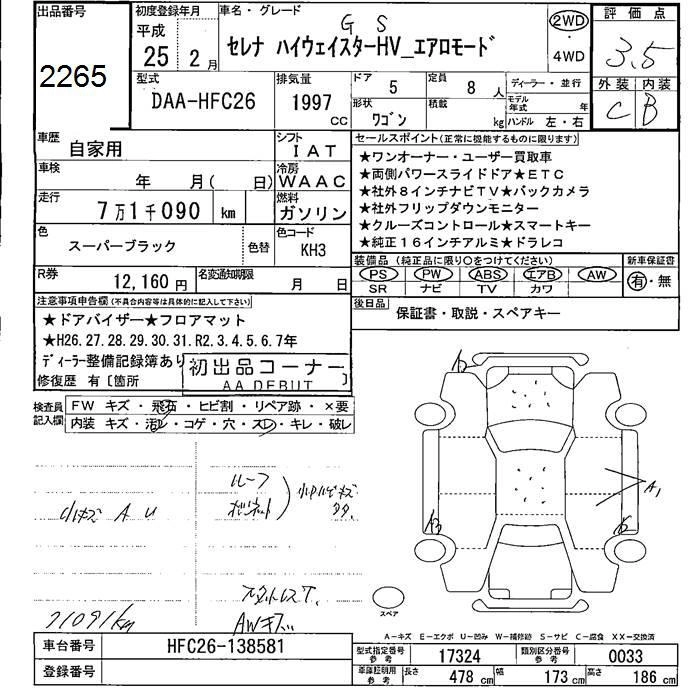 出品番号
2265
初度登録年月
平成
25 2 月
車名・グレード
G S
セレナ ハイウェイスターHV_エアロモード
2WD
4WD
評価点
3.5
外装 内装
C B
型式
DAA-HFC26
排気量
1997 CC
ドア
5
定員
8 人
形状
ワゴン
積載
kg
ディーラー・並行
モデル年式 年
ハンドル 左・右
車歴
自家用
シフト
IAT
車検
年 月( 日)
冷房
WAAC
走行
7万1千090 km
燃料
ガソリン
色
スーパーブラック
色替
色コード
KH3
R券
12,160 円
名変通知期限
月 日
セールスポイント(正常に機能するものに限ります)
★ワンオーナー・ユーザー買取車
★両側パワースライドドア★ETC
★社外8インチナビTV★バックカメラ
★社外フリップダウンモニター
★クルーズコントロール★スマートキー
★純正16インチアルミ★ドラレコ
装備品 (純正品に限り○をつけてください)
PS PW ABS エアB AW
SR ナビ TV カワ
新車保証書
有・無
後日品
保証書・取説・スペアキー
注意事項申告欄(不具合内容等は具体的に記入して下さい)
★ドアバイザー★フロアマット
★H26.27.28.29.30.31.R2.3.4.5.6.7年
ディーラー整備記録簿あり
初出品コーナー
AA DEBUT
修復歴 有〔箇所 〕
検査員記入欄
FW キズ・飛石・ヒビ割・リペア跡・×要
内装 キズ・汚レ・コゲ・穴・スレ・キレ・破レ
小キズ A U
ルーフ
ボンネット
71091km
AWキズ
A2
A1
スペア
A-キズ E-エクボ U-凹み W-補修跡 S-サビ C-腐食 XX-交換済
車台番号
HFC26-138581
登録番号
型式指定番号 参考
17324
類別区分番号 参考
0033
車庫証明用 参考
長さ 478 cm
幅 173 cm
高さ 186 cm